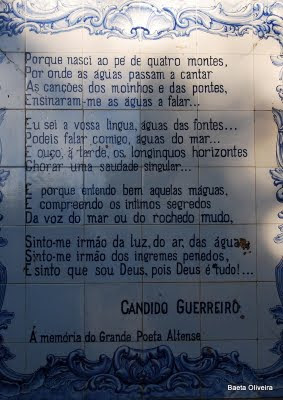 Porque nasci ao pé de quatro montes,
Por onde as águas passam a cantar
As canções dos moinhos e das pontes,
Ensinaram-me as águas a falar...
Eu sei a vossa língua, águas das fontes...
Podeis falar comigo, águas do mar...
E ouço, á tarde, os longinquos horizontes
Chorar uma saudade singular...
E porque entendo bem aquelas máguas,
E compreendo os intimos segredos
Da voz do mar ou do rochedo mudo,
Sinto-me irmão da luz, do ar, das águas
Sinto-me irmão dos ingremes penedos,
E sinto que sou Deus, pois Deus é tudo!...
CANDIDO GUERREIRO
Á memória do Grande Poeta Altense
Baeta Oliveira